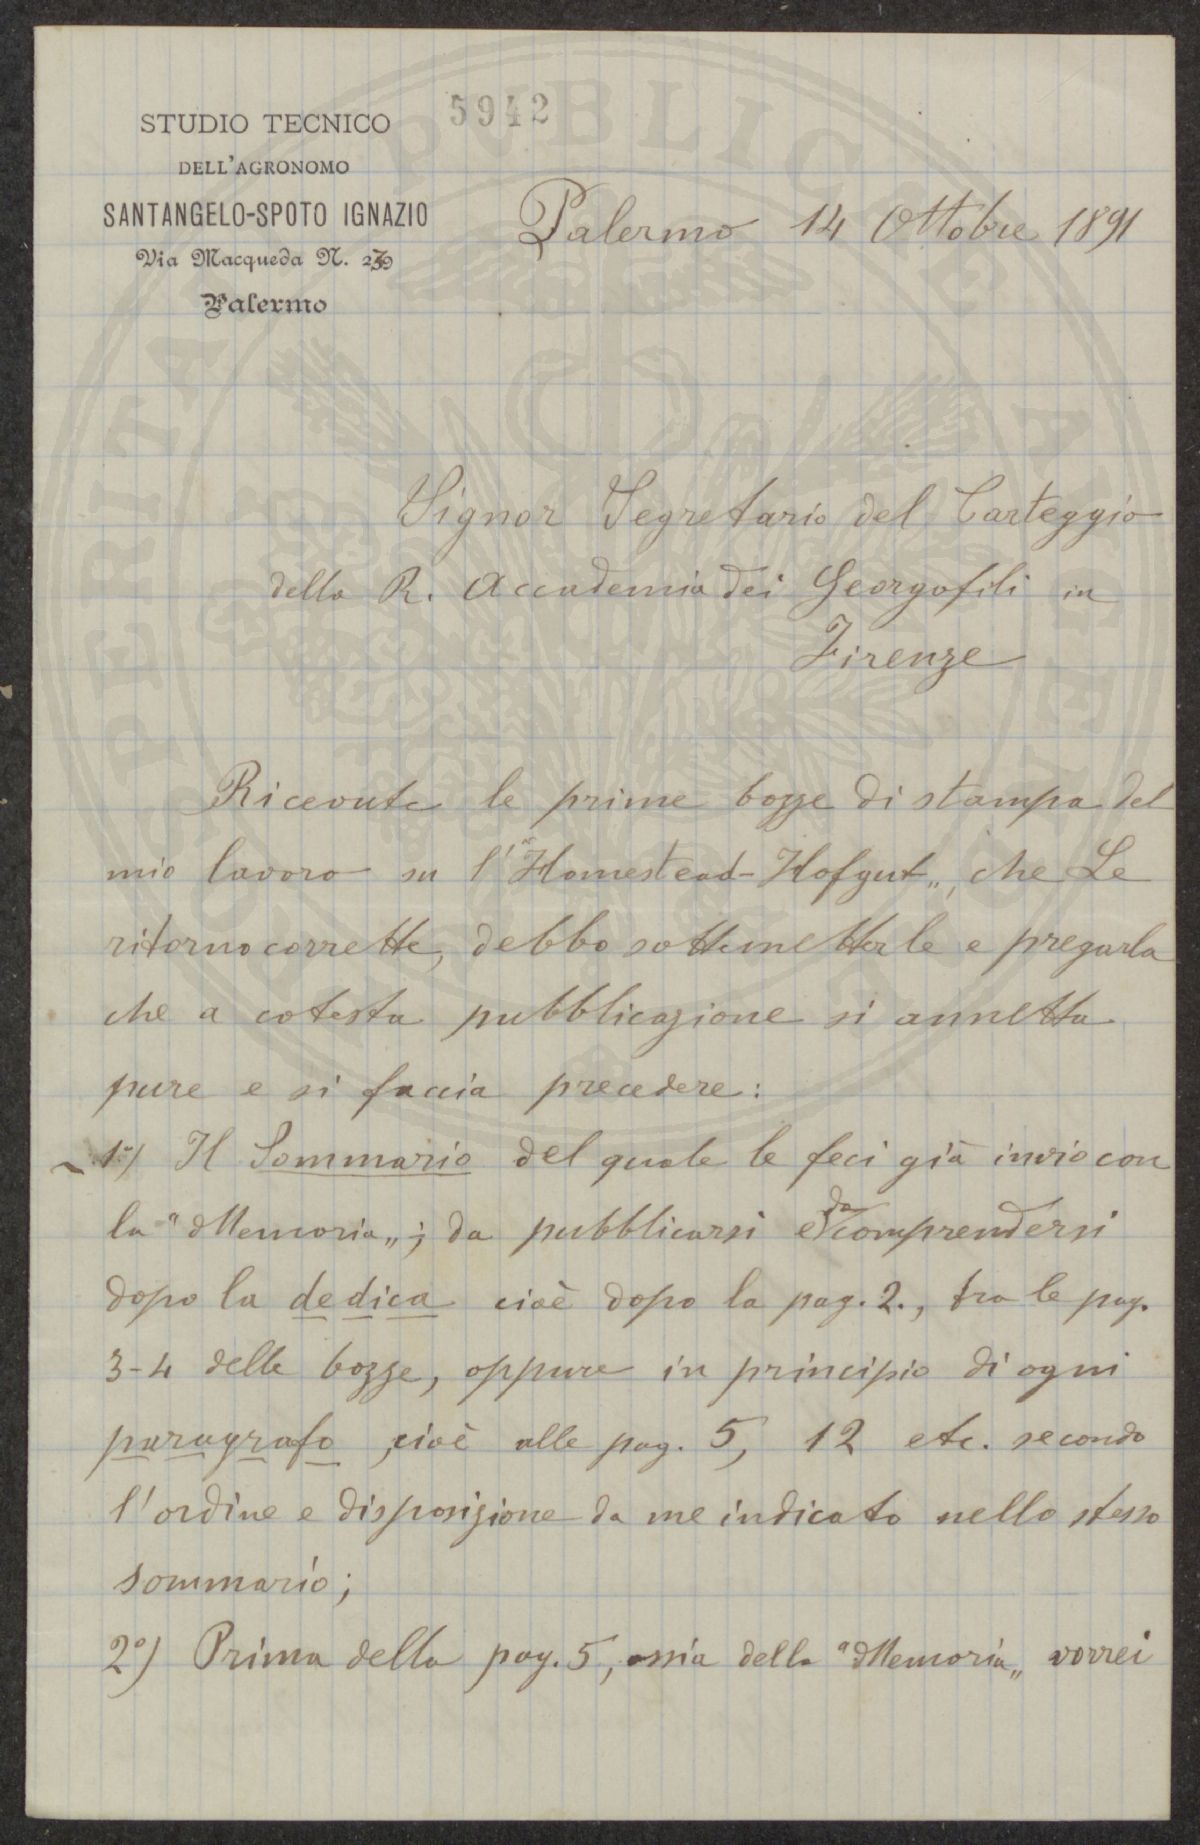 5942
STUDIO TECNICO
DELL'AGRONOMO
SANTANGELO-SPOTO IGNAZIO
Via Macqueda N.
Palermo
Palermo 14 Ottobre 1891
Signor Segretario del Carteggio
della R. Accademia dei Georgofili in
Firenze
Ricevute le prime bozze di stampa del
mio lavoro su l'"Homestead-Hofgut„, che Le
ritorno corrette, debbo sottometterle e pregarla
che a cotesta pubblicazione si annetta
pure e si faccia precedere:
1º) Il Sommario del quale le feci già invio con
la "Memoria„; da pubblicarsi e da comprendersi
dopo la dedica cioè dopo la pag. 2., tra le pag.
3-4 delle bozze, oppure in principio di ogni
paragrafo, cioè alle pag. 5, 12 etc. secondo
l'ordine e disposizione da me indicato nello stesso
sommario;
2º) Prima della pag. 5, ossia della "Memoria„ vorrei